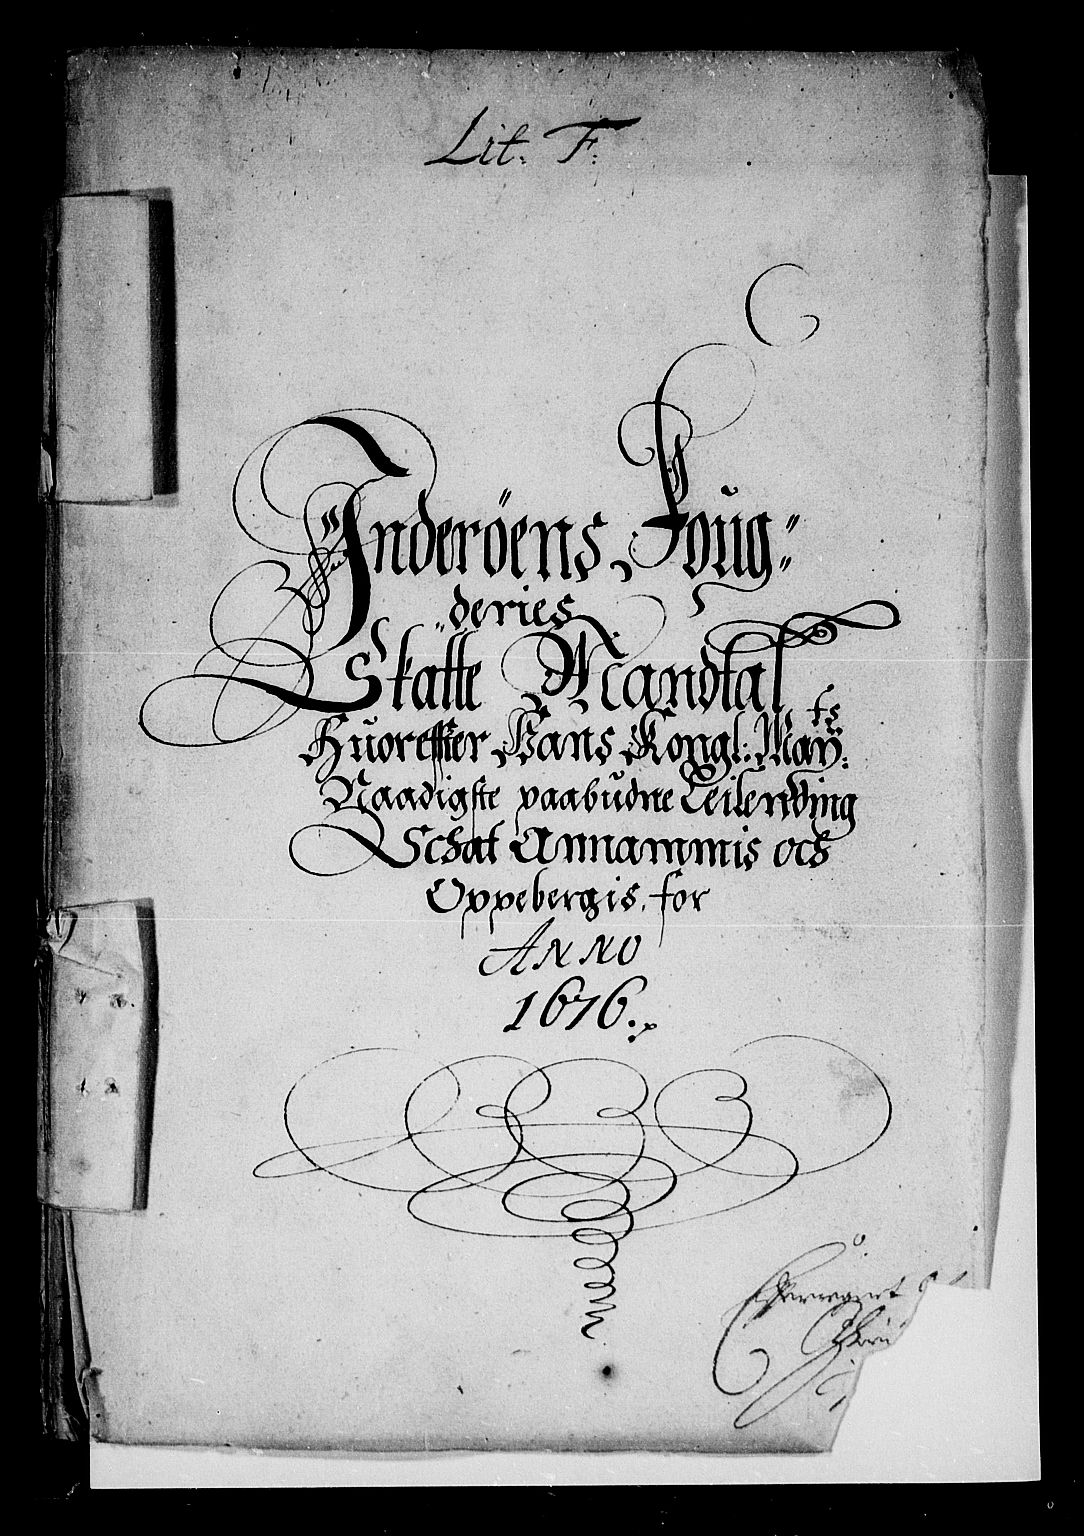 Lit. F.
Inderöens Foug=
"deries
Skatte Mandtal
Huoreffter Hans Kongl: May:ts
Naadigste paabudne Leilending
Schat Annammis och
Oppebergis, for
ANNO
1676.